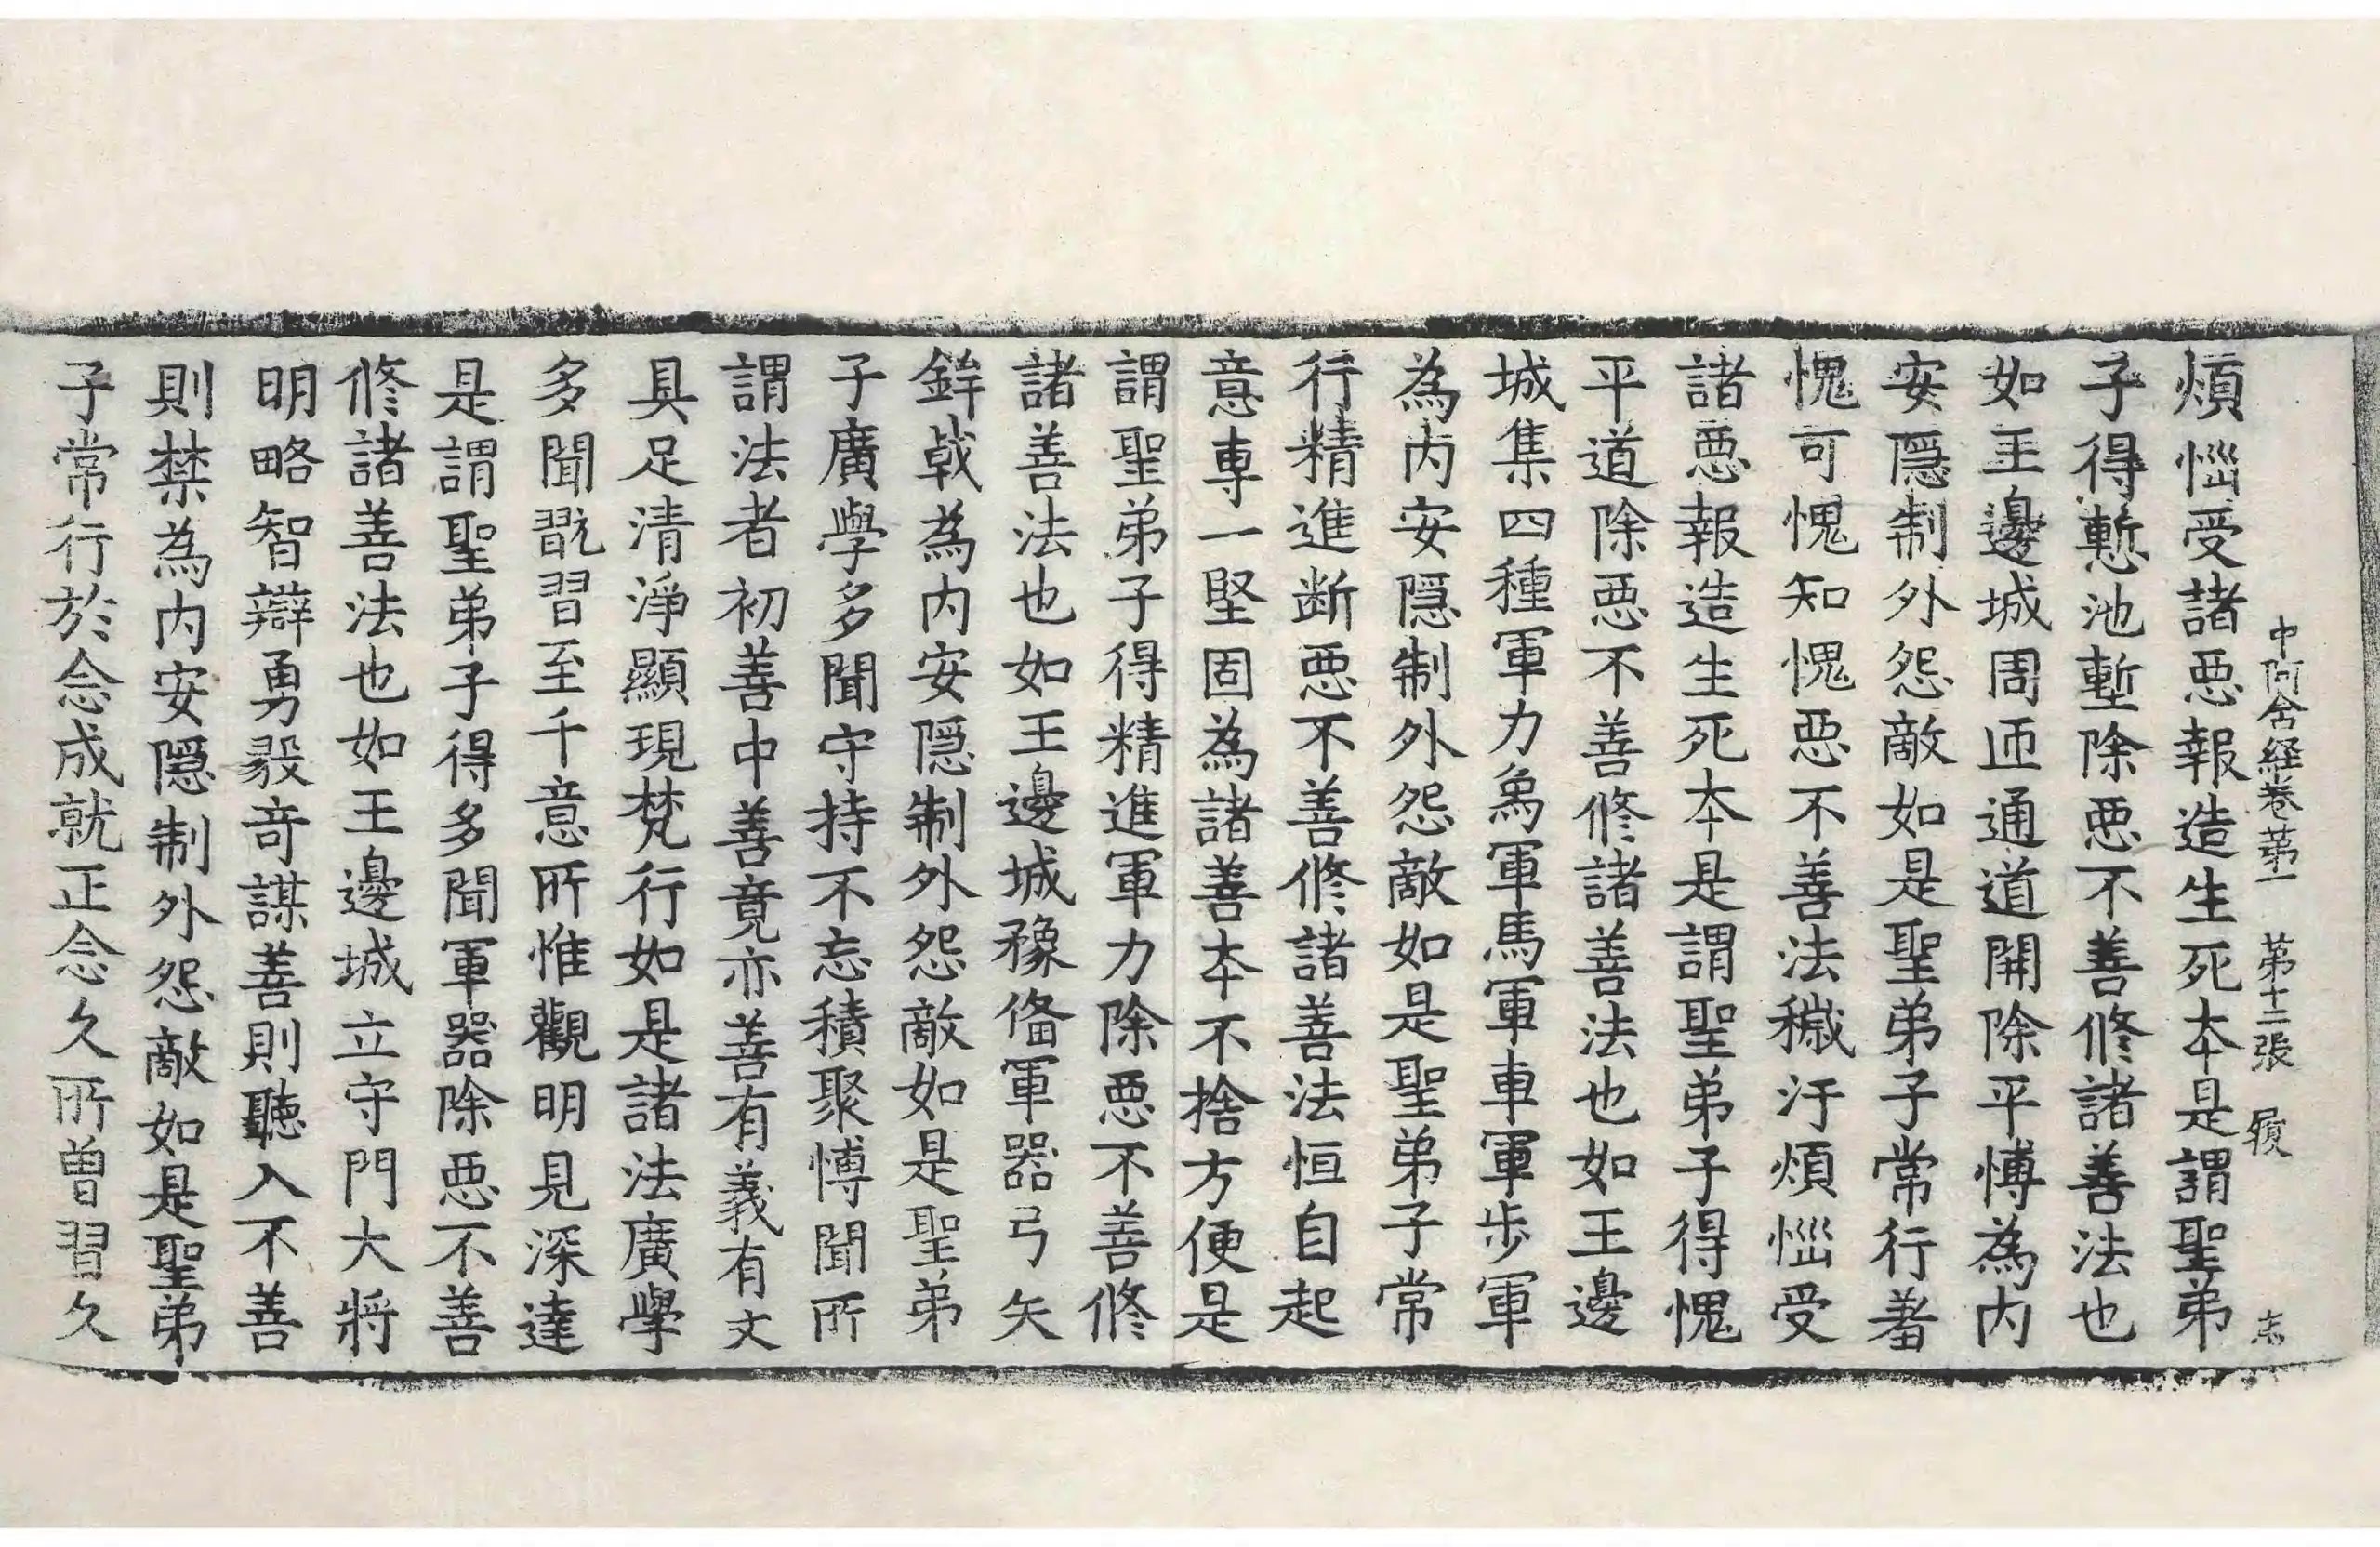 中阿含経卷苐一 苐十二張 履 志
煩惱受諸惡報造生死本是謂聖弟
子得慙池塹除惡不善修諸善法也
如王邊城周匝通道開除平博為内
安隱制外怨敵如是聖弟子常行羞
愧可愧知愧惡不善法穢汙煩惱受
諸惡報造生死本是謂聖弟子得愧
平道除惡不善修諸善法也如王邊
城集四種軍力象軍馬軍車軍步軍
為内安隱制外怨敵如是聖弟子常
行精進断惡不善修諸善法恒自起
意專一堅固為諸善本不捨方便是
謂聖弟子得精進軍力除惡不善修
諸善法也如王邊城豫俻軍器弓矢
鉾戟為内安隱制外怨敵如是聖弟
子廣學多聞守持不忘積聚博聞所
謂法者初善中善竟亦善有義有文
具足清淨顯現梵行如是諸法廣學
多聞翫習至千意所惟觀明見深達
是謂聖弟子得多聞軍器除惡不善
修諸善法也如王邊城立守門大將
明略智辯勇毅竒謀善則聽入不善
則禁為内安隱制外怨敵如是聖弟
子常行於念成就正念久所曽習久